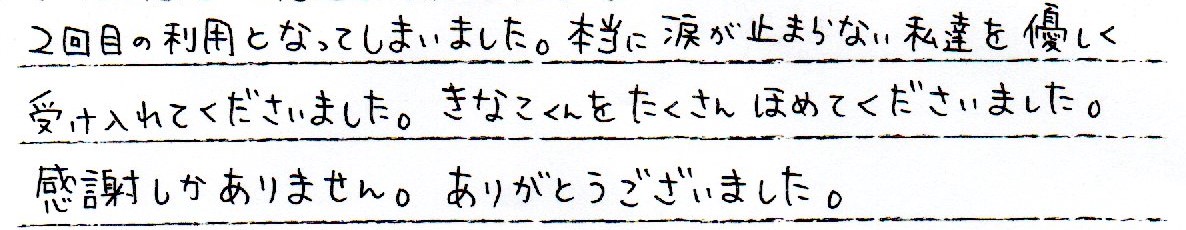 2回目の利用となってしまいました。本当に涙が止まらない私達を優しく
受け入れてくださいました。きなこくんをたくさんほめてくださいました。
感謝しかありません。ありがとうございました。